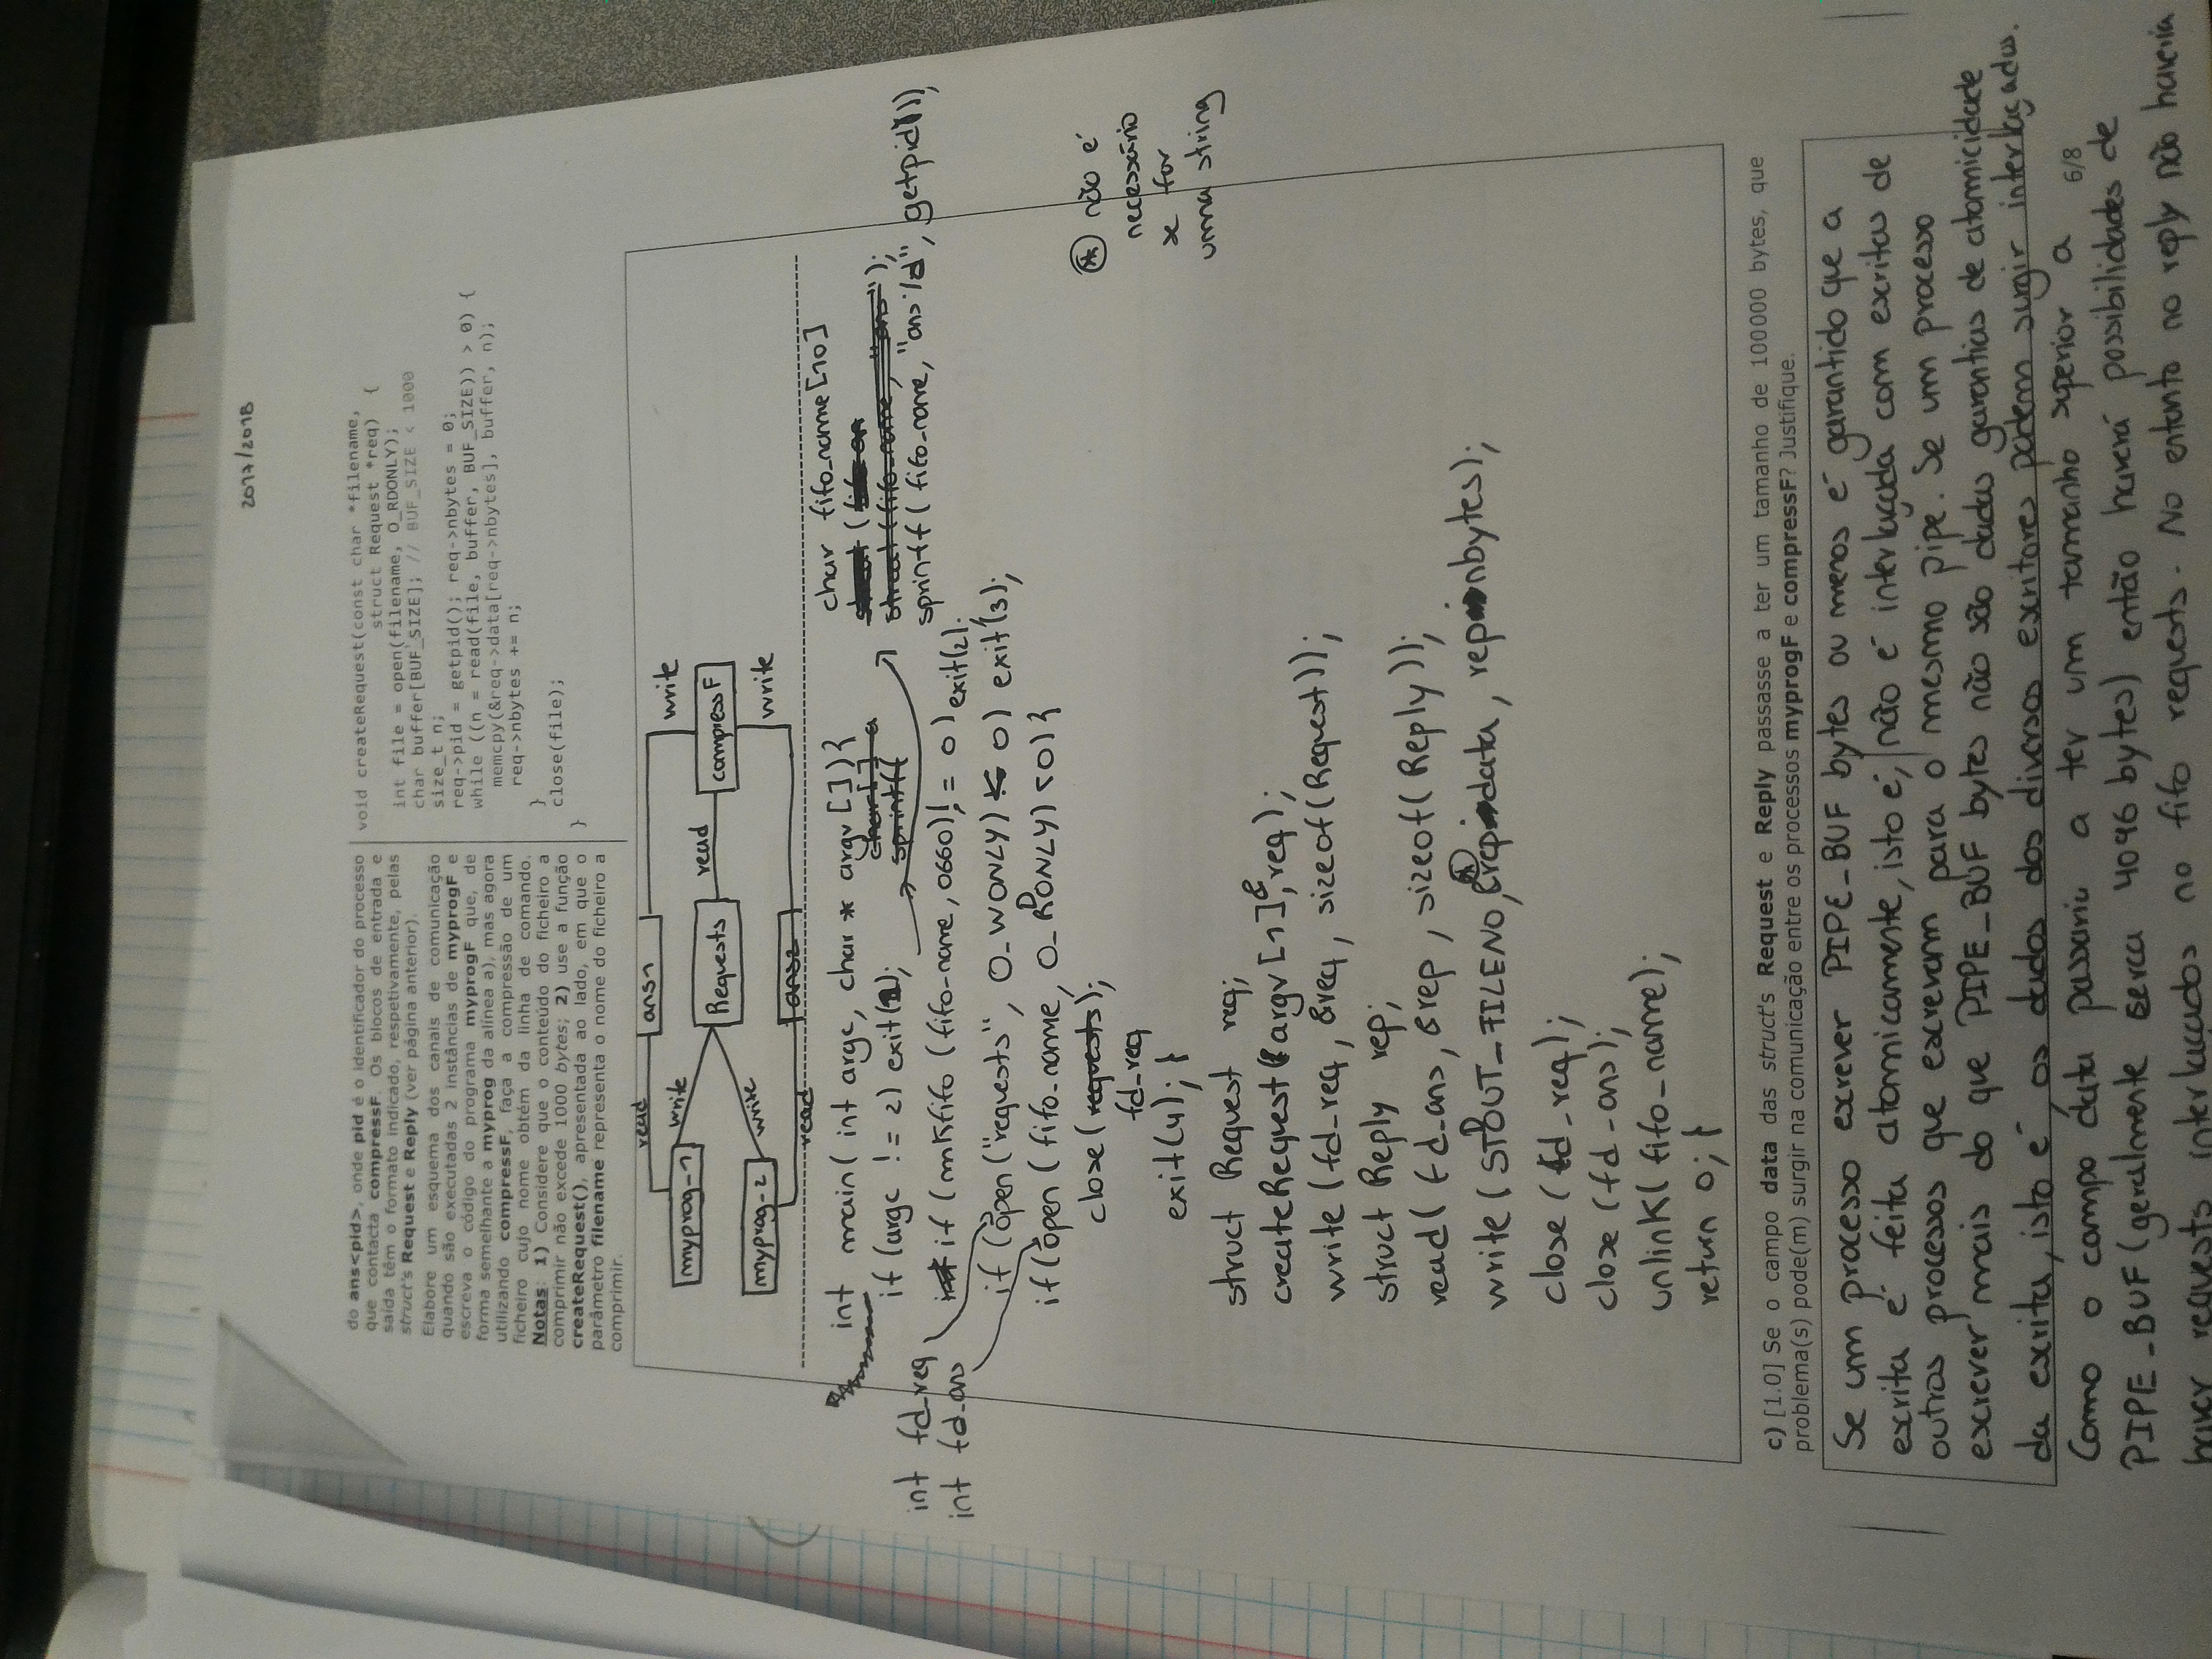 2017/2018
do ans<pid>, onde pid é o identificador do processo
que contacta compressF. Os blocos de entrada e
saída têm o formato indicado, respetivamente, pelas
struct's Request e Reply (ver página anterior).
Elabore um esquema dos canais de comunicação
quando são executadas 2 instâncias de myprogF e
escreva o código do programa myprogF que, de
forma semelhante a myprog da alínea a), mas agora
utilizando compressF, faça a compressão de um
ficheiro cujo nome obtém da linha de comando.
Notas: 1) Considere que o conteúdo do ficheiro a
comprimir não excede 1000 bytes; 2) use a função
createRequest(), apresentada ao lado, em que o
parâmetro filename representa o nome do ficheiro a
comprimir.
void createRequest(const char *filename,
struct Request *req) {
int file = open(filename, O_RDONLY);
char buffer[BUF_SIZE]; // BUF_SIZE < 1000
size_t n;
req->pid = getpid(); req->nbytes = 0;
while ((n = read(file, buffer, BUF_SIZE)) > 0) {
memcpy(&req->data[req->nbytes], buffer, n);
req->nbytes += n;
}
close(file);
}
read ans1 write
myprog-1 write
Requests read compressF
myprog-2 write
write
read ans2
int main( int argc, char * argv []){
char[] a
sprintff
if (argc != 2) exit(1);
char fifo_name[10]
struct (fifo_name, "ans");
sprintf( fifo_name, "ans%d", getpid());
int fd_req
int fd_ans
if (mkfifo (fifo-name, 0660)! = 0) exit(2);
if (open("requests", O_WONLY) < 0) exit(3);
if(open (fifo_name, O_RDONLY) <0){
close(requests);
fd_req
exit(4); }
* não é
necessário
se for
uma string
struct Request req;
createRequest(argv[1], &req);
write (fd_req, &req, sizeof(Request));
struct Reply rep;
read( fd_ans, &rep, sizeof( Reply));
write( STDOUT_FILENO, &rep.data, rep.nbytes);
close (fd_req);
close (fd-ans);
unlink( fifo_name);
return 0; }
c) [1.0] Se o campo data das struct's Request e Reply passasse a ter um tamanho de 100000 bytes, que
problema(s) pode(m) surgir na comunicação entre os processos myprogF e compressF? Justifique.
Se um processo escrever PIPE_BUF bytes ou menos é garantido que a
escrita é feita atomicamente, isto é, não é interlaçada com escritas de
outros processos que escrevam para o mesmo pipe. Se um processo
escrever mais do que PIPE_BUF bytes não são dadas garantias de atomicidade
da escrita, isto é, os dados dos diversos escritores podem surgir interlaçados.
Como o campo data passaria a ter um tamanho superior a
6/8
PIPE_BUF (geralmente serca 4096 bytes) então haverá possibilidades de
haver requests interlaçados no fifo requests. No entanto no reply não haveria